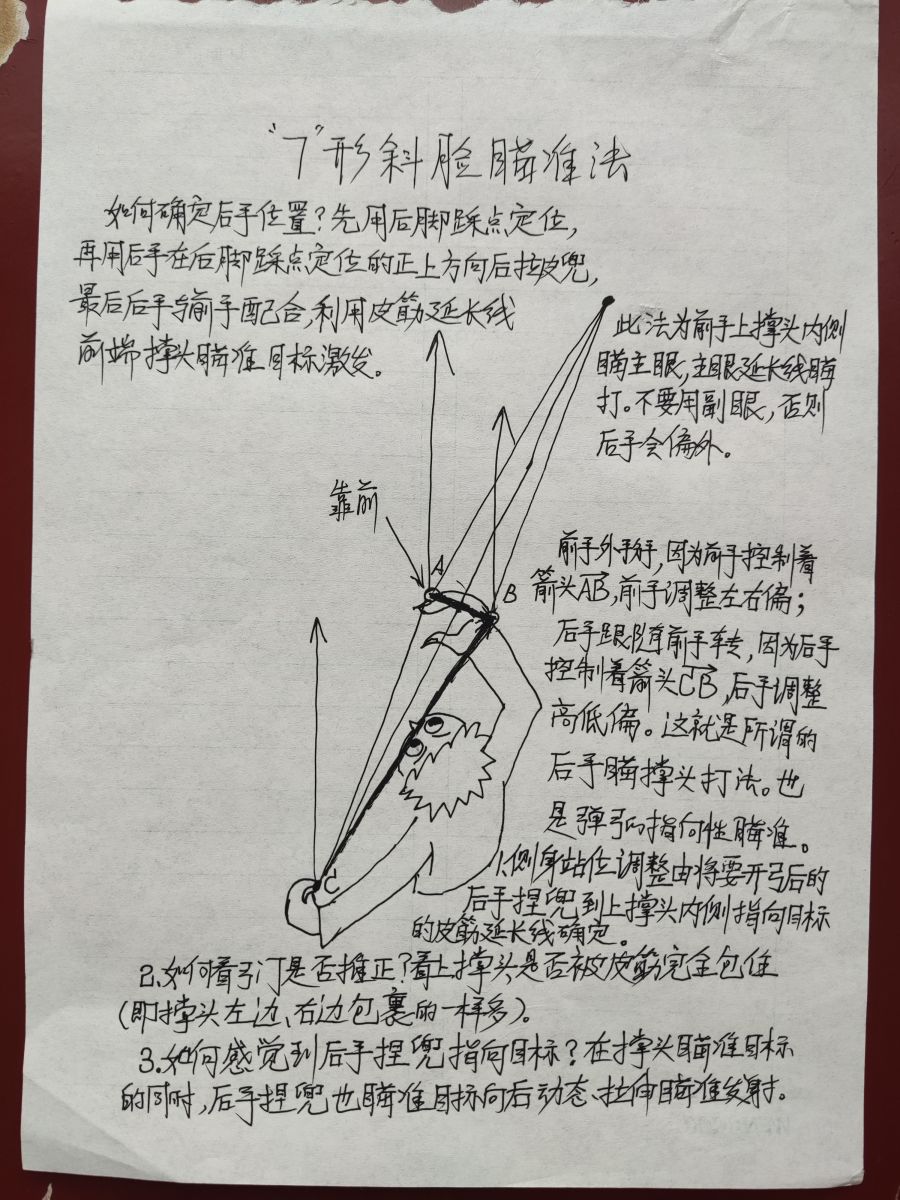 “7”形斜脸瞄准法
如何确定后手位置？先用后脚踩点定位，
再用后手在后脚踩点定位的正上方向后拉皮兜，
最后后手与前手配合，利用皮筋延长线
前端撑头瞄准目标激发。
此法为前手上撑头内侧
瞄主眼，主眼延长线瞄
打。不要用副眼，否则
后手会偏外。
靠前
A
B
C
前手外掰，因为前手控制着
箭头AB，前手调整左右偏；
后手跟随前手转，因为后手
控制着箭头CB，后手调整
高低偏。这就是所谓的
后手瞄撑头打法。也
是弹弓的指向性瞄准。
1.侧身站位调整由将要开弓后的
后手捏兜到上撑头内侧指向目标
的皮筋延长线确定。
2.如何看弓门是否推正？看上撑头是否被皮筋完全包住
（即撑头左边、右边包裹的一样多）。
3.如何感觉到后手捏兜指向目标？在撑头瞄准目标
的同时，后手捏兜也瞄准目标向后动态、拉伸瞄准发射。